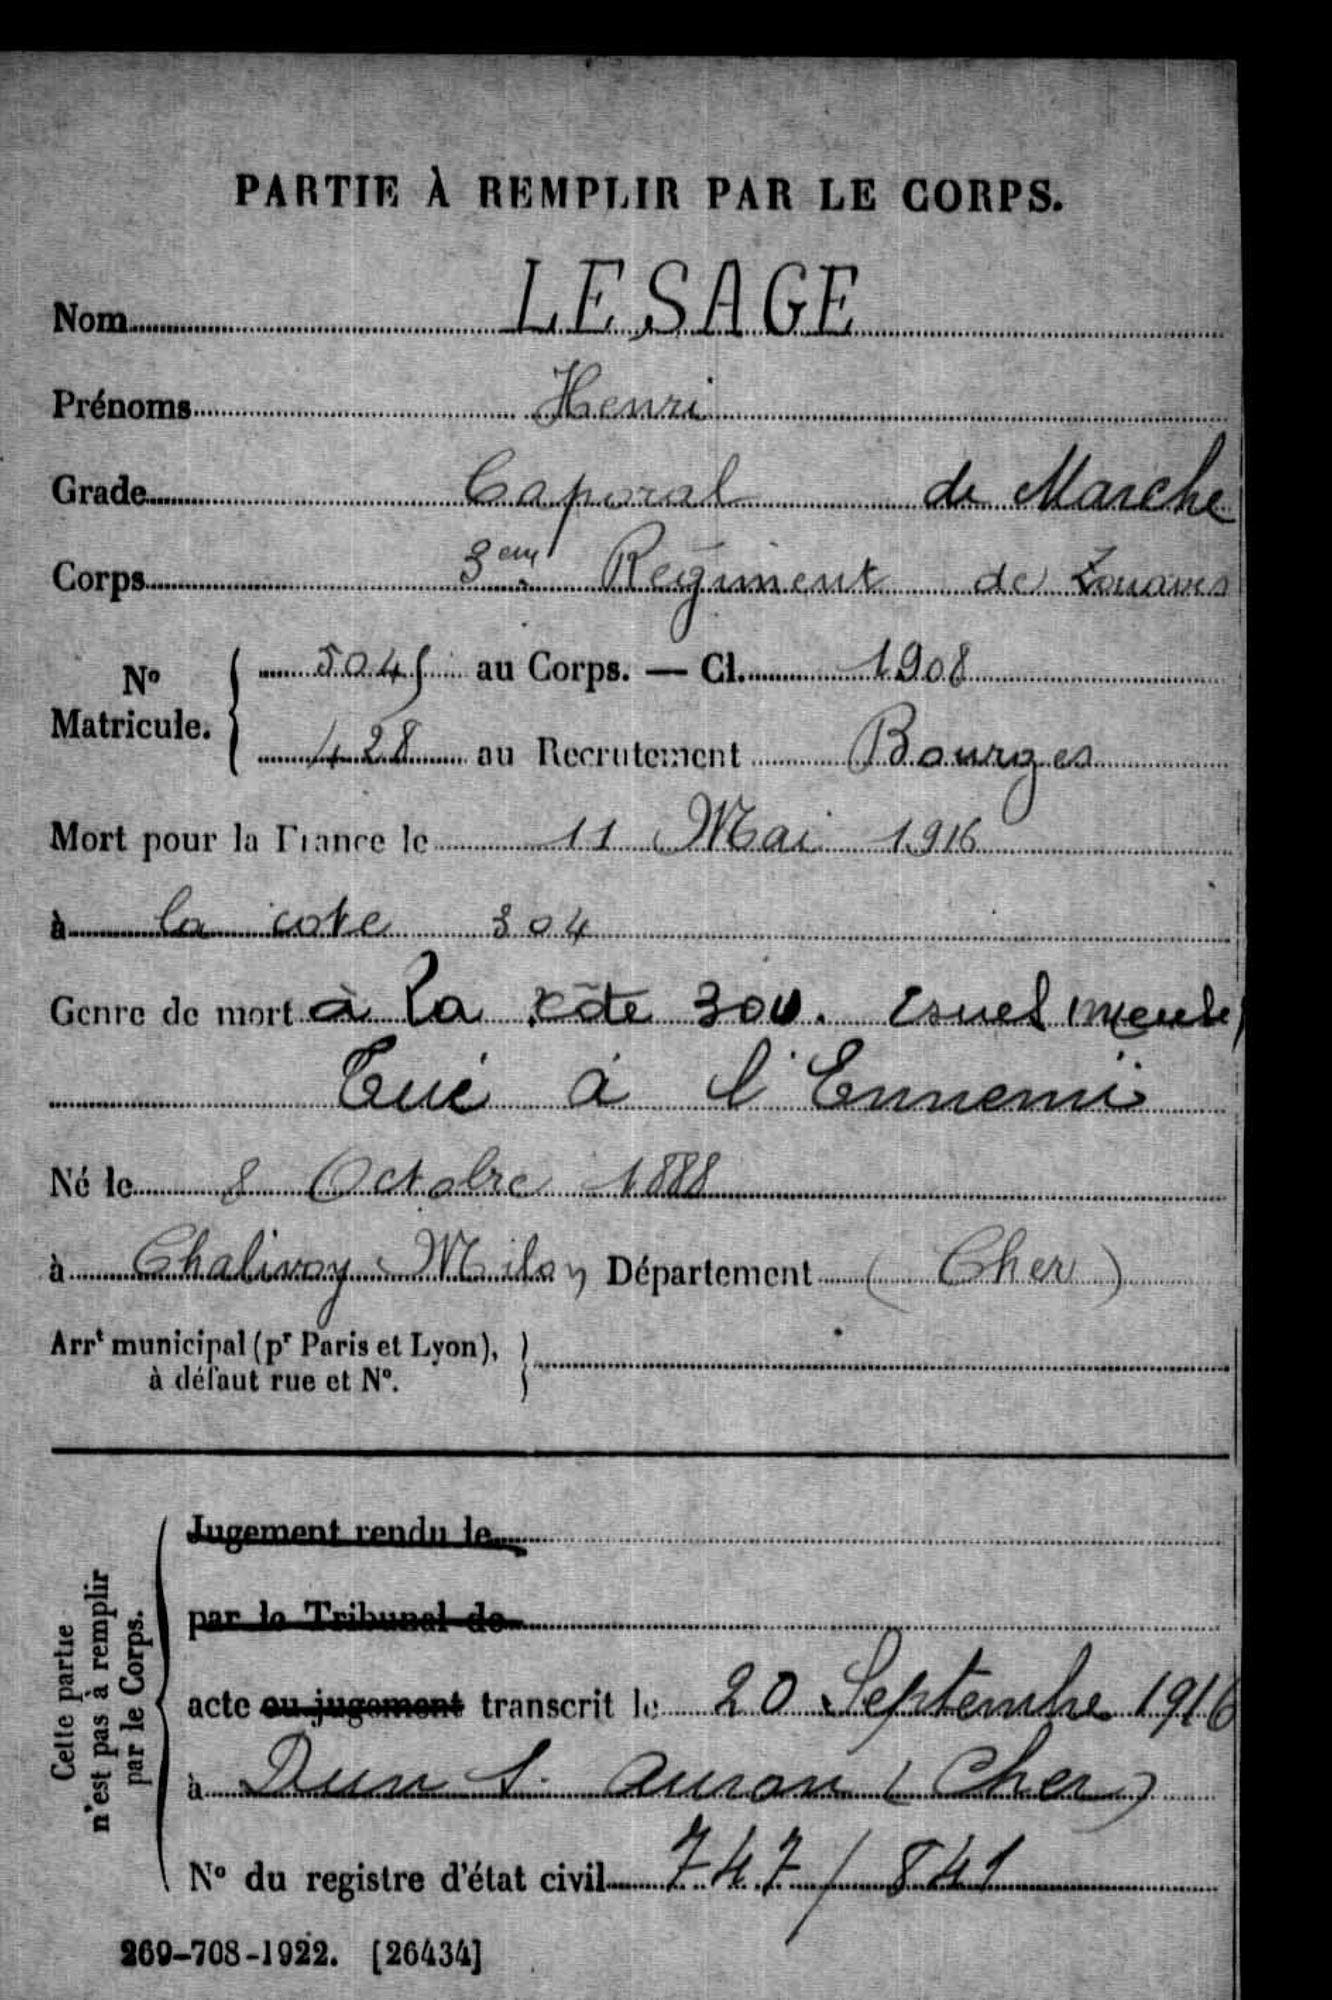 PARTIE À REMPLIR PAR LE CORPS.
Nom LESAGE
Prénoms Henri
Grade Caporal de Marche
Corps 3eme Régiment de Zouaves
No Maticule. 5045 au Corps. — Cl. 1908
428 au Recrutement Bourges
Mort pour la France le 11 Mai 1916
à la cote 304
Genre de mort à la côte 304. Esnes Meuse
Tué à l'Ennemi
Né le 8 Octobre 1888
à Chalivoy Milon Département (Cher)
Arrt municipal (pr Paris et Lyon),
à défaut rue et No.
Cette partie
n'est pas à remplir
par le Corps.
Jugement rendu le
par le Tribunal de
acte ou jugement transcrit le 20 Septembre 1916
à Dun s. Auron (Cher)
No du registre d'état civil 747/841
269-708-1922. [26434]